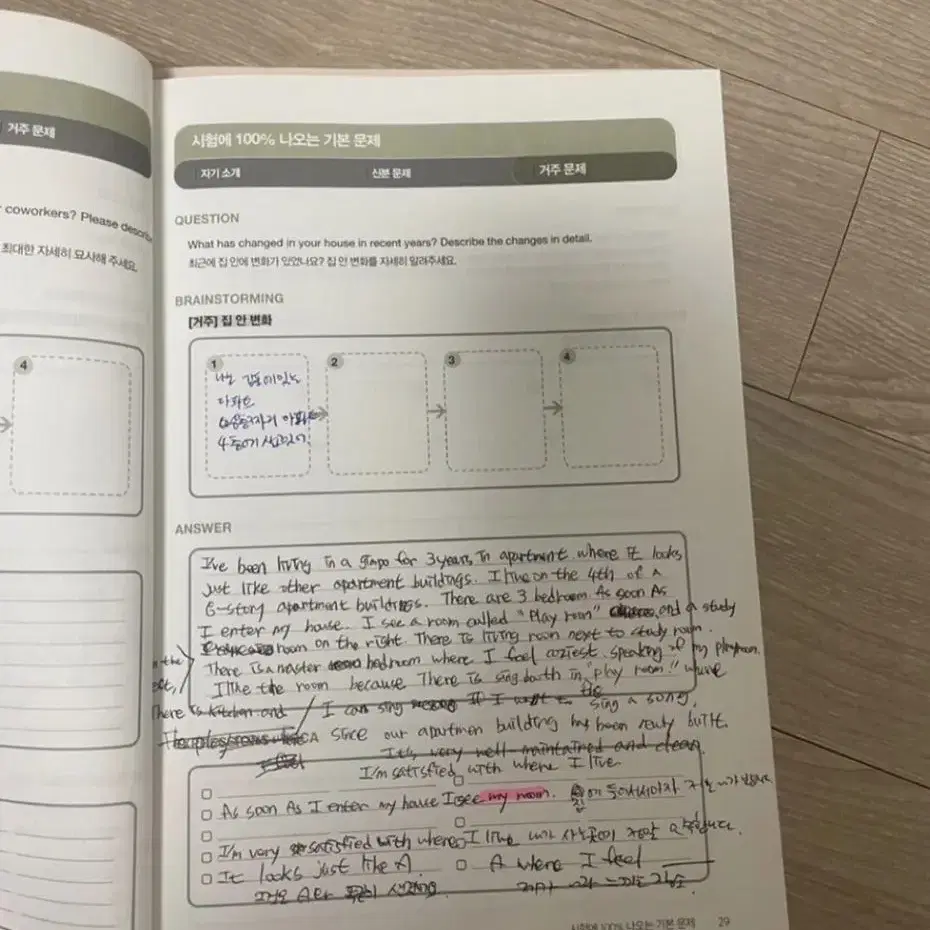 거주 문제
coworkers? Please describe
최대한 자세히 묘사해 주세요.
4
시험에 100% 나오는 기본 문제
자기 소개 신분 문제 거주 문제
QUESTION
What has changed in your house in recent years? Describe the changes in detail.
최근에 집 안에 변화가 있었나요? 집 안 변화를 자세히 알려주세요.
BRAINSTORMING
[거주] 집 안 변화
1 2 3 4
나는
4층에 살고있어.
ANSWER
I've been living in a gimpo for 3 years, In apartment where It looks
just like other apartment buildings. I live on the 4th of a
6-story apartment buildings. There are 3 bedroom. As soon As
I enter my house. I see a room called "Play room" and a study
room on the right. There Is living room next to study room.
There is a master bedroom where I feel coziest. speaking of my playroom.
I like the room because There is sing booth in "play room." where
There is kitchen and I can sing If I want to sing a song.
our apartmen building has been newly built.
It's very well-maintained and clean.
I'm satisfied with where I live
As soon As I enter my house I see my room.
I'm very satisfied with where I live 내가 사는곳이 정말 만족합니다.
It looks just like A. A where I feel
A와 똑같이 생겼어요. 내가 느끼는
시험에 100% 나오는 기본 문제 29